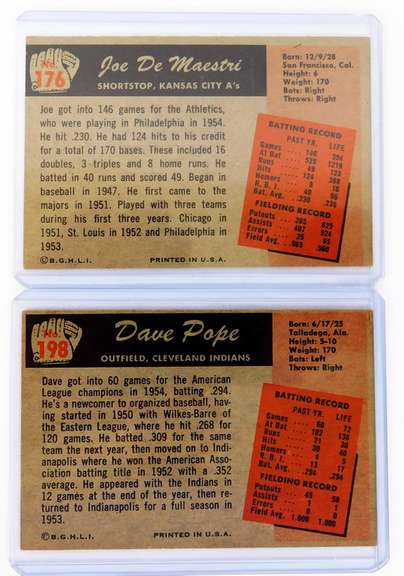 No.
176
Joe De Maestri
SHORTSTOP, KANSAS CITY A's
Born: 12/9/28
San Francisco, Cal.
Height: 6
Weight: 170
Bats: Right
Throws: Right
Joe got into 146 games for the Athletics,
who were playing in Philadelphia in 1954.
He hit .230. He had 124 hits to his credit
for a total of 170 bases. These included 16
doubles, 3 triples and 8 home runs. He
batted in 40 runs and scored 49. Began in
baseball in 1947. He first came to the
majors in 1951. Played with three teams
during his first three years. Chicago in
1951, St. Louis in 1952 and Philadelphia in
1953.
BATTING RECORD
PAST YR. LIFE
Games 146
At Bat 539 1219
Runs 49
Hits 124
Homers 8
R. B. I. 40
Bat. Avg. .230
FIELDING RECORD
Putouts
Assists 407
Errors 25
Field Avg.
©B.G.H.L.I. PRINTED IN U.S.A.
No.
198
Dave Pope
OUTFIELD, CLEVELAND INDIANS
Born: 6/17/25
Talladega, Ala.
Height: 5-10
Weight: 170
Bats: Left
Throws: Right
Dave got into 60 games for the American
League champions in 1954, batting .294.
He's a newcomer to organized baseball, hav-
ing started in 1950 with Wilkes-Barre of
the Eastern League, where he hit .268 for
120 games. He batted .309 for the same
team the next year, then moved on to Indi-
anapolis where he won the American Asso-
ciation batting title in 1952 with a .352
average. He appeared with the Indians in
12 games at the end of the year, then re-
turned to Indianapolis for a full season in
1953.
BATTING RECORD
PAST YR. LIFE
Games 60 72
At Bat 102 136
Runs 21 30
Hits 30 40
Homers 4
R. B. I. 13 17
Bat. Avg. .294 .294
FIELDING RECORD
Putouts 45
Assists 1 1
Errors
Field Avg. 1.000 1.000
©B.G.H.L.I. PRINTED IN U.S.A.